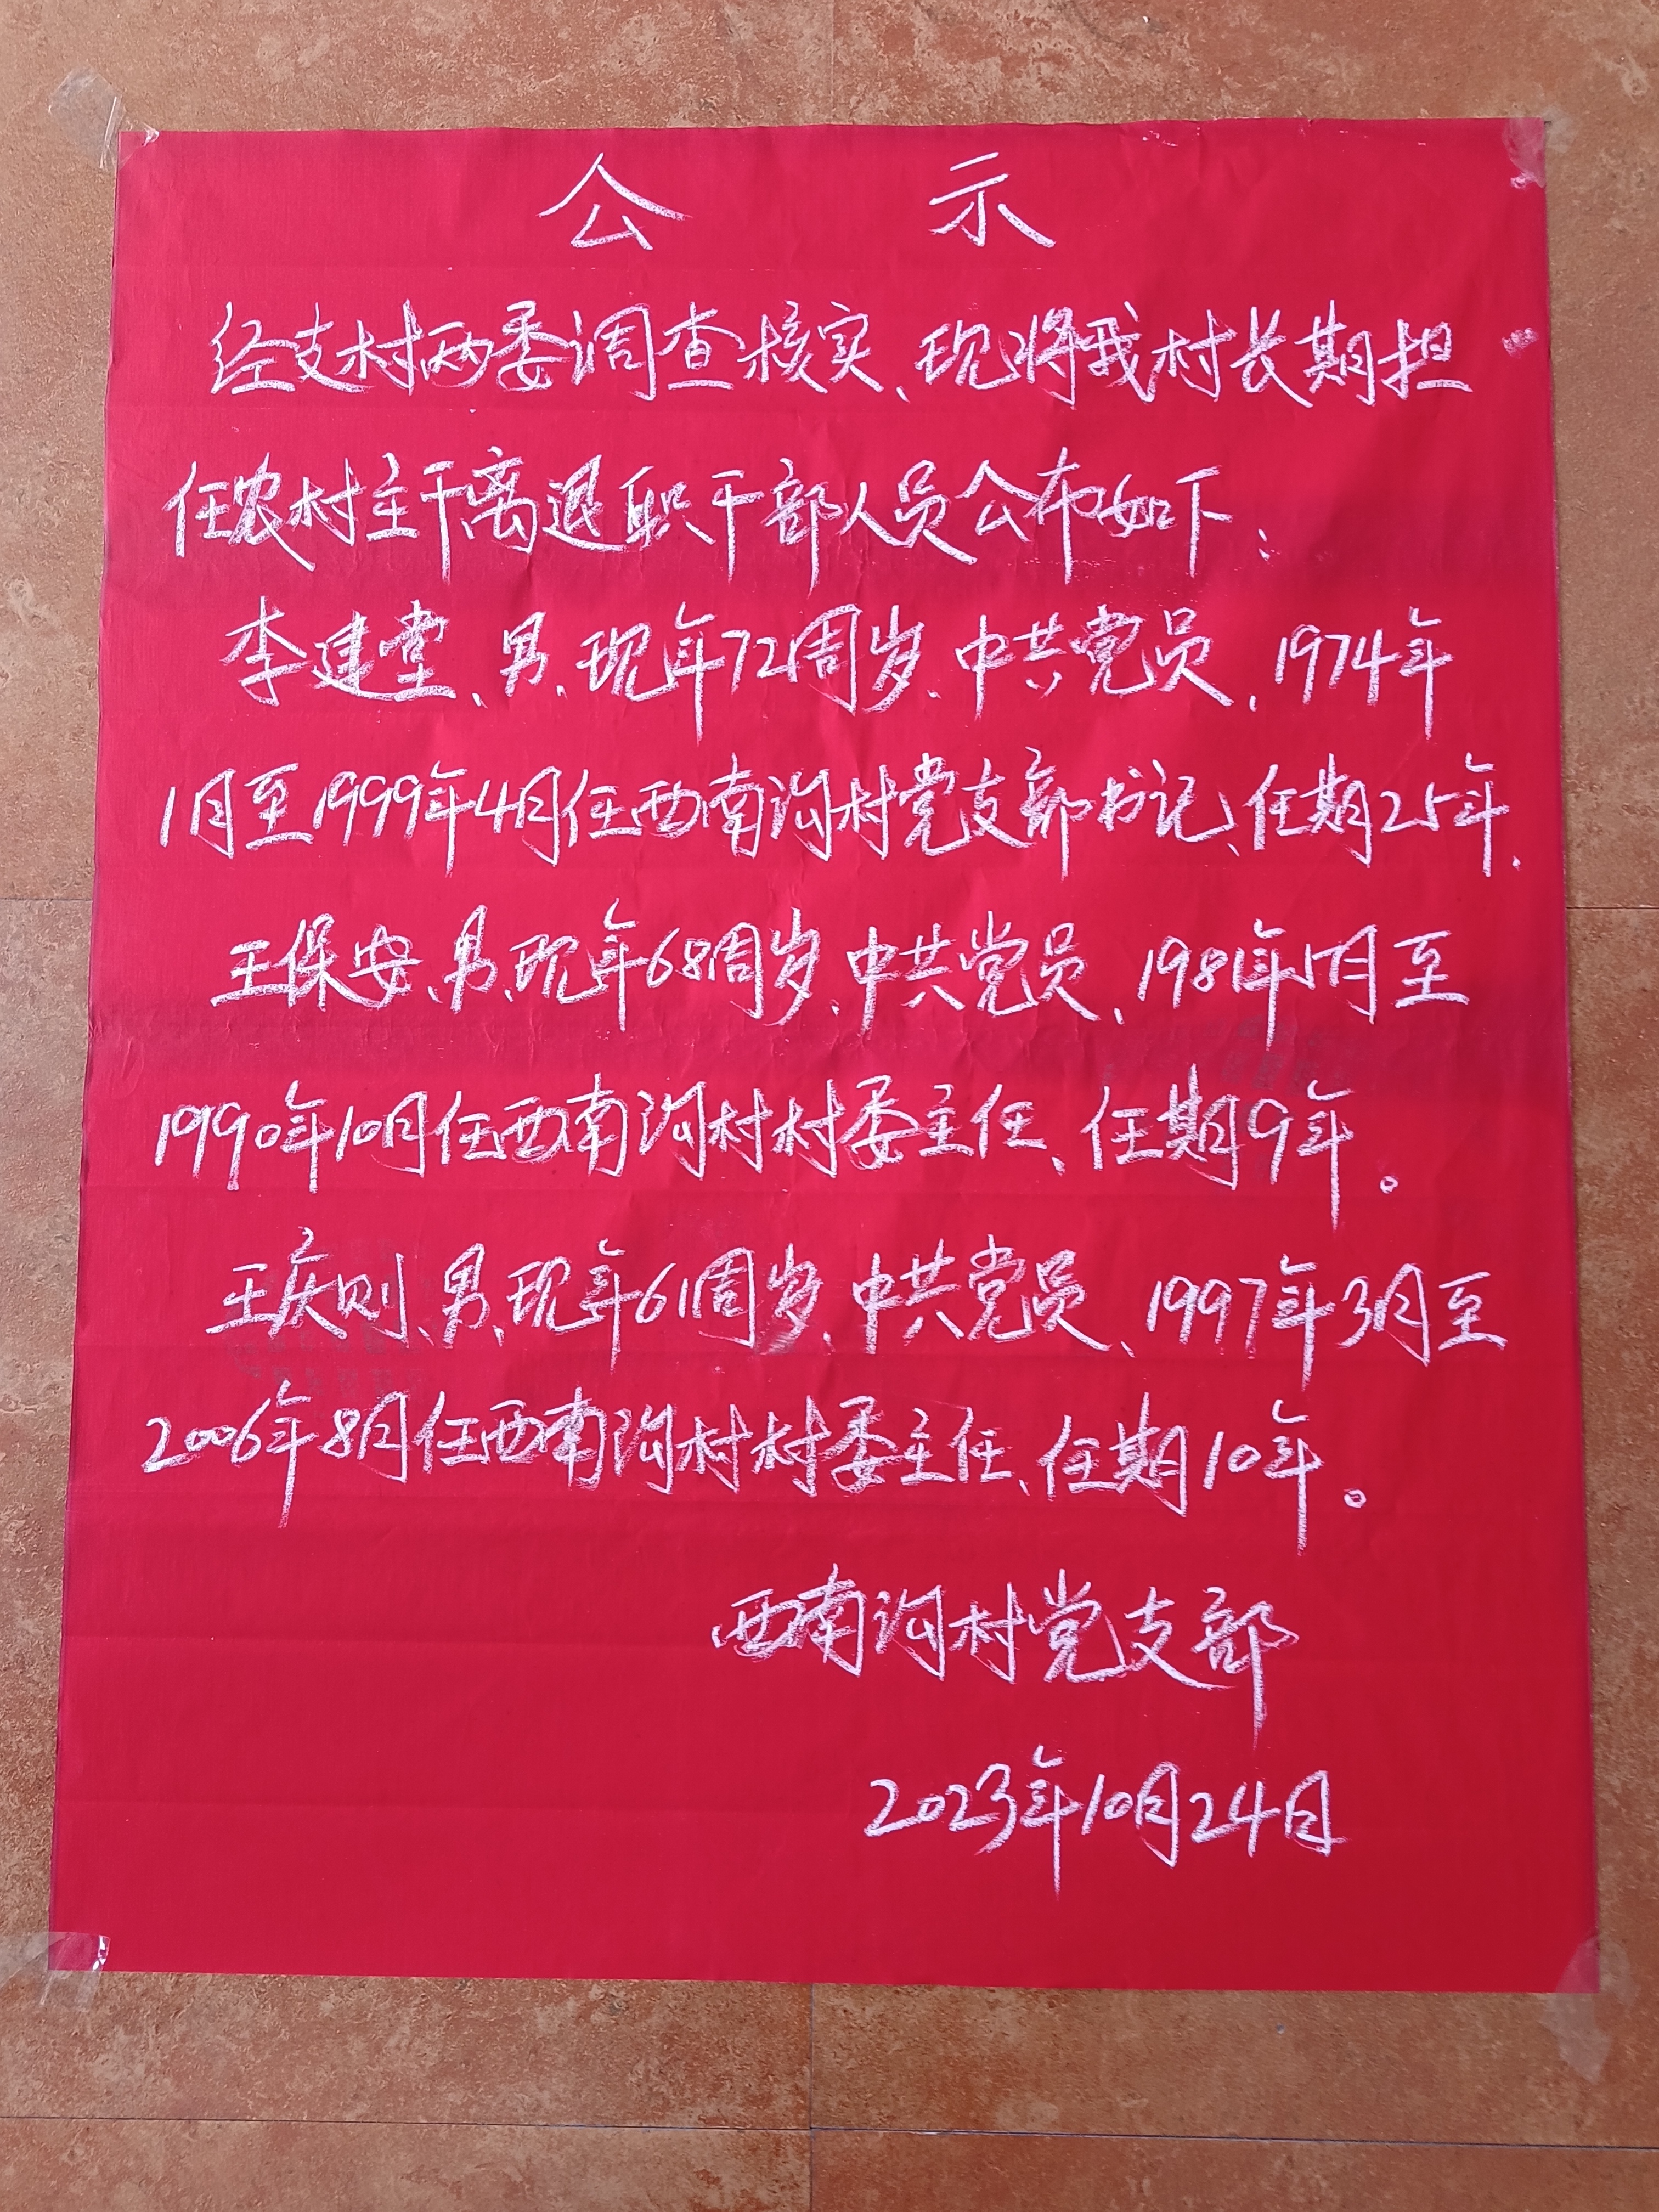 公示
经支村两委调查核实、现将我村长期担
任农村主干离退职干部人员公布如下：
李建堂、男、现年72周岁、中共党员、1974年
1月至1999年4月任西南沟村党支部书记、任期25年、
王保安、男、现年68周岁、中共党员、1981年1月至
1990年10月任西南沟村村委主任、任期9年。
王庆则、男、现年61周岁、中共党员、1997年3月至
2006年8月任西南沟村村委主任、任期10年。
西南沟村党支部
2023年10月24日